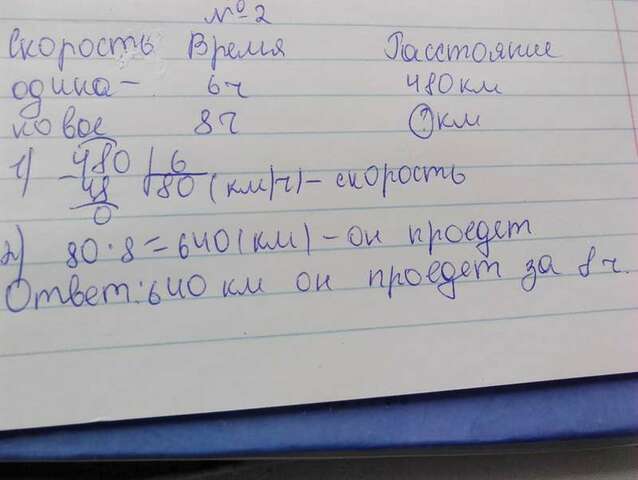 №2
Скорость Время Расстояние
одина- 6ч 480км
ковое 8ч ? км
1) 480 | 6
48 80 (км/ч) - скорость
0
2) 80 · 8 = 640 (км) - он проедет
Ответ: 640 км он проедет за 8ч.